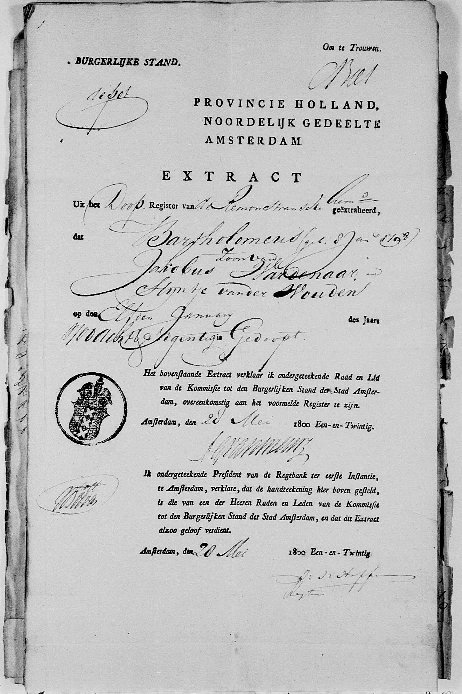 Om te Trouwen.
BURGERLIJKE STAND.
PROVINCIE HOLLAND,
NOORDELIJK GEDEELTE
AMSTERDAM
EXTRACT
Uit het Doop Register van de Remonstrantsche
geëxtraheerd,
dat Bartholomeus
Zoon van
Jacobus Wassenaar
van der Wouden
op den Elfden January des Jaars
Gedoopt
Het bovenstaande Extract verklaar ik ondergeteekende Raad en Lid
van de Kommissie tot den Burgerlijken Stand der Stad Amster-
dam, overeenkomstig aan het voormelde Register te zijn.
Amsterdam, den 28 Mei 1800 Een-en-Twintig.
Ik ondergeteekende President van de Regtbank ter eerste Instantie,
te Amsterdam, verklare, dat de handteekening hier boven gesteld,
is die van een der Heeren Raden en Leden van de Kommissie
tot den Burgerlijken Stand der Stad Amsterdam, en dat dit Extract
alzoo geloof verdient.
Amsterdam, den 28 Mei 1800 Een-en-Twintig.